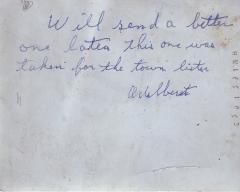 Will send a better
one later this one was
taken for the town lister